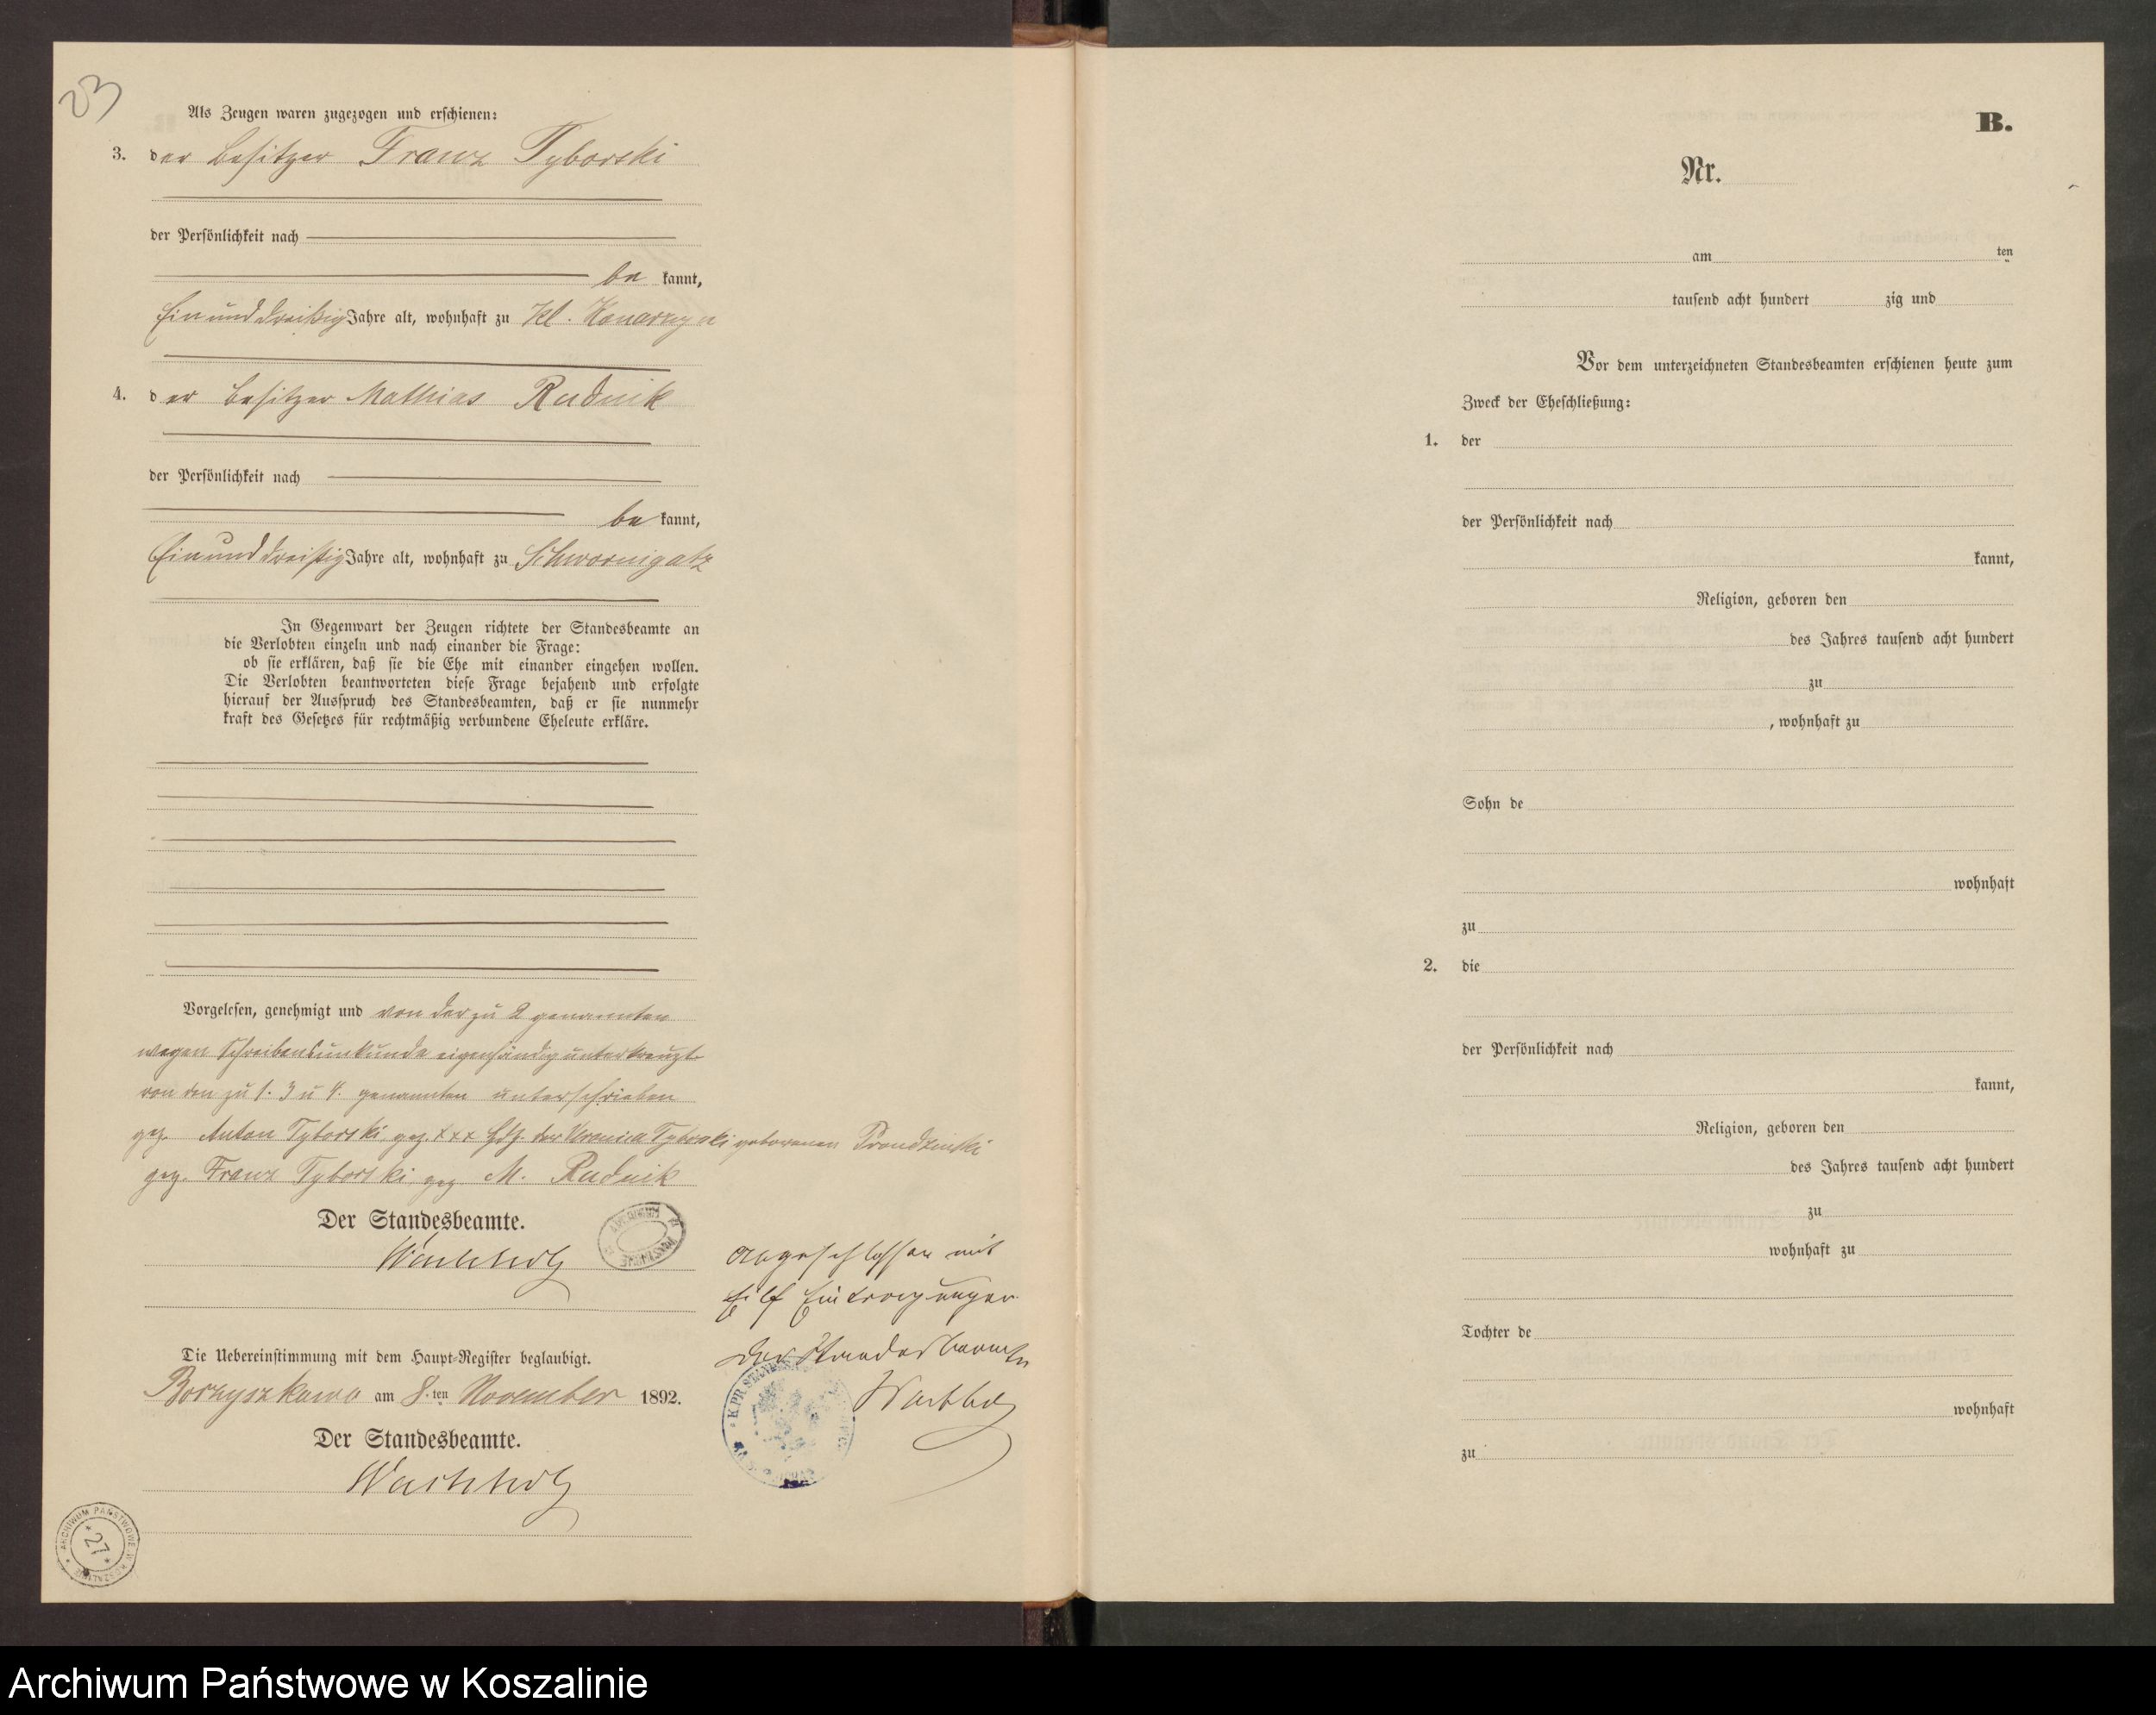 23
Als Zeugen waren zugezogen und erschienen:
3. der Besitzer Franz Tyborski
der Persönlichkeit nach
be kannt,
Einunddreißig Jahre alt, wohnhaft zu Kl. Konarzyn
4. der Besitzer Mathias Rudnik
der Persönlichkeit nach
be kannt,
Einunddreißig Jahre alt, wohnhaft zu Schwornigatz
In Gegenwart der Zeugen richtete der Standesbeamte an
die Verlobten einzeln und nach einander die Frage:
ob sie erklären, daß sie die Ehe mit einander eingehen wollen.
Die Verlobten beantworteten diese Frage bejahend und erfolgte
hierauf der Ausspruch des Standesbeamten, daß er sie nunmehr
kraft des Gesetzes für rechtmäßig verbundene Eheleute erkläre.
Vorgelesen, genehmigt und von der zu 2 genannten
wegen Schreibensunkunde eigenhändig unterkreuzt
von den zu 1. 3 u 4. genannten unterschrieben
gez. Anton Tyborski gez. xxx Hdz. der Veronica Tyborski geborenen Prondzinski
gez. Franz Tyborski gez M. Rudnik
Der Standesbeamte.
Wachholz
Die Uebereinstimmung mit dem Haupt-Register beglaubigt.
Borzyszkowo am 8. ten November 1892.
Der Standesbeamte.
Wachholz
Abgeschlossen mit
Eilf Eintragungen
Der Standesbeamte
Wachholz
K. PR. STANDES
ARCHIWUM PAŃSTWOWE W KOSZALINIE
27
B.
Nr.
am ten
tausend acht hundert zig und
Vor dem unterzeichneten Standesbeamten erschienen heute zum
Zweck der Eheschließung:
1. der
der Persönlichkeit nach
kannt,
Religion, geboren den
des Jahres tausend acht hundert
zu
, wohnhaft zu
Sohn de
wohnhaft
zu
2. die
der Persönlichkeit nach
kannt,
Religion, geboren den
des Jahres tausend acht hundert
zu
wohnhaft zu
Tochter de
wohnhaft
zu
Archiwum Państwowe w Koszalinie